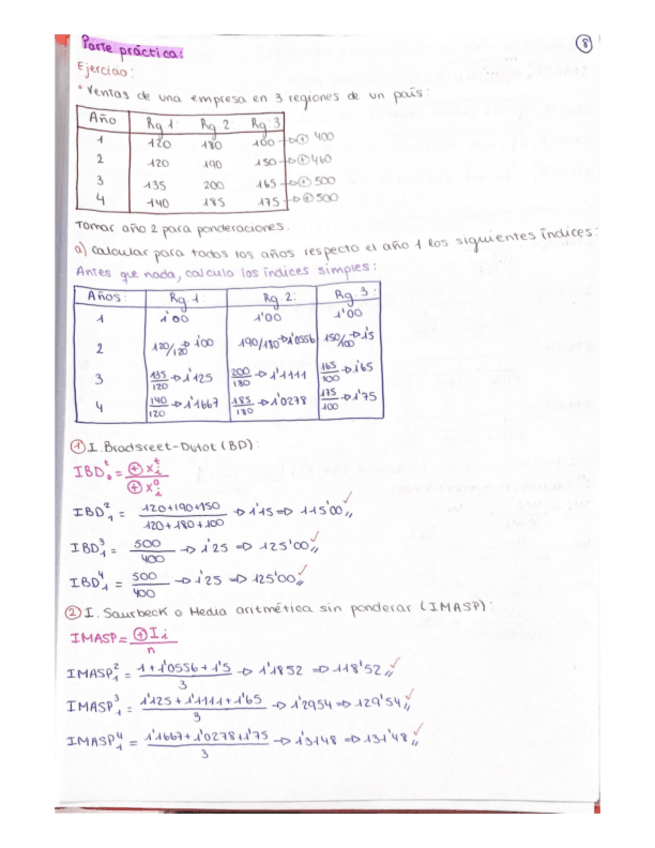 8
Parte práctica:
Ejercicio:
* Ventas de una empresa en 3 regiones de un país:
Año Rg 1: Rg 2: Rg. 3
1 120 180 100 → ⊕ 400
2 120 190 150 → ⊕ 460
3 135 200 165 → ⊕ 500
4 140 185 175 → ⊕ 500
Tomar año 2 para ponderaciones.
a) Calcular para todos los años respecto el año 1 los siguientes índices:
Antes que nada, calculo los índices simples:
Años: Rg. 1: Rg. 2: Rg. 3:
1 1'00 1'00 1'00
2 120/120 → 1'00 190/180 → 1'0556 150/100 → 1'5
3 135/120 → 1'125 200/180 → 1'1111 165/100 → 1'65
4 140/120 → 1'1667 185/180 → 1'0278 175/100 → 1'75
① I. Bradsreet-Dutot (BD):
IBD₀ᵗ = ⊕ xᵢᵗ / ⊕ xᵢ⁰
IBD₁² = 120+190+150 / 120+180+100 → 1'15 ⇒ 115'00 ✓
IBD₁³ = 500/400 → 1'25 ⇒ 125'00 ✓
IBD₁⁴ = 500/400 → 1'25 ⇒ 125'00 ✓
② I. Saurbeck o Media aritmética sin ponderar (IMASP):
IMASP = ⊕ Iᵢ / n
IMASP₁² = 1+1'0556+1'5 / 3 → 1'1852 ⇒ 118'52 ✓
IMASP₁³ = 1'125+1'1111+1'65 / 3 → 1'2954 ⇒ 129'54 ✓
IMASP₁⁴ = 1'1667+1'0278+1'75 / 3 → 1'3148 ⇒ 131'48 ✓